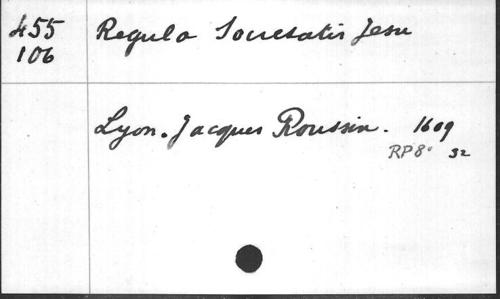 455 Regula Societatis Jesu
106
Lyon. Jacques Roussin. 1609
RP8° 32